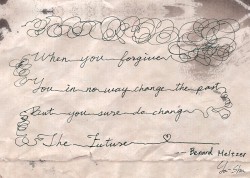 When you forgive
You in no way change the past
But you sure do change
The Future
-- Benard Meltzer